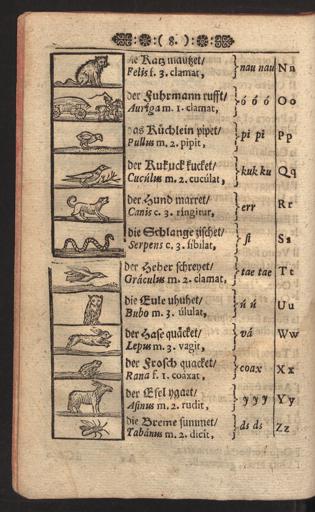 :( 8. ):
die Katz mautzet/
Felis f. 3. clamat, nau nau Nn
der Fuhrmann rufft/
Auriga m. 1. clamat, ó ó ó Oo
das Küchlein pipet/
Pullus m. 2. pipit, pi pi Pp
der Kukuck kucket/
Cucúlus m. 2. cucúlat, kuk ku Qq
der Hund marret/
Canis c. 3. ringitur, err Rr
die Schlange zischet/
Serpens c. 3. sibilat, si Ss
der Heher schreyet/
Gráculus m. 2. clamat, tae tae Tt
die Eule uhuhet/
Bubo m. 3. úlulat, ú ú Uu
der Hase quäcket/
Lepus m. 3. vagit, vá Ww
der Frosch quacket/
Rana f. 1. coáxat, coax Xx
der Esel ygaet/
Asinus m. 2. rudit, y y y Yy
die Breme summet/
Tabánus m. 2. dicit, ds ds Zz